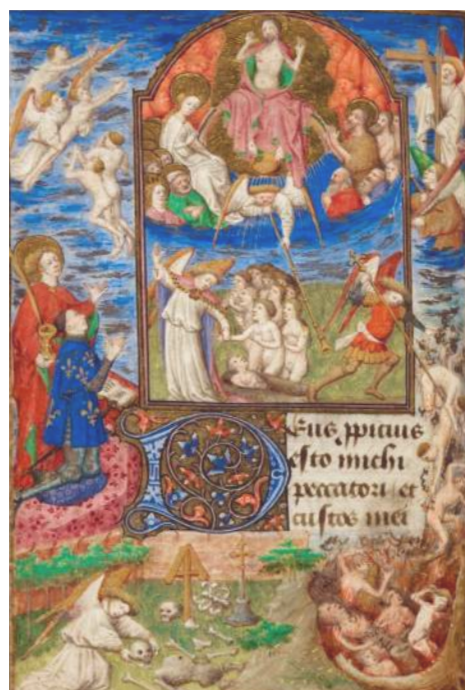 DEus ppicius
esto michi
peccatori et
custos mei